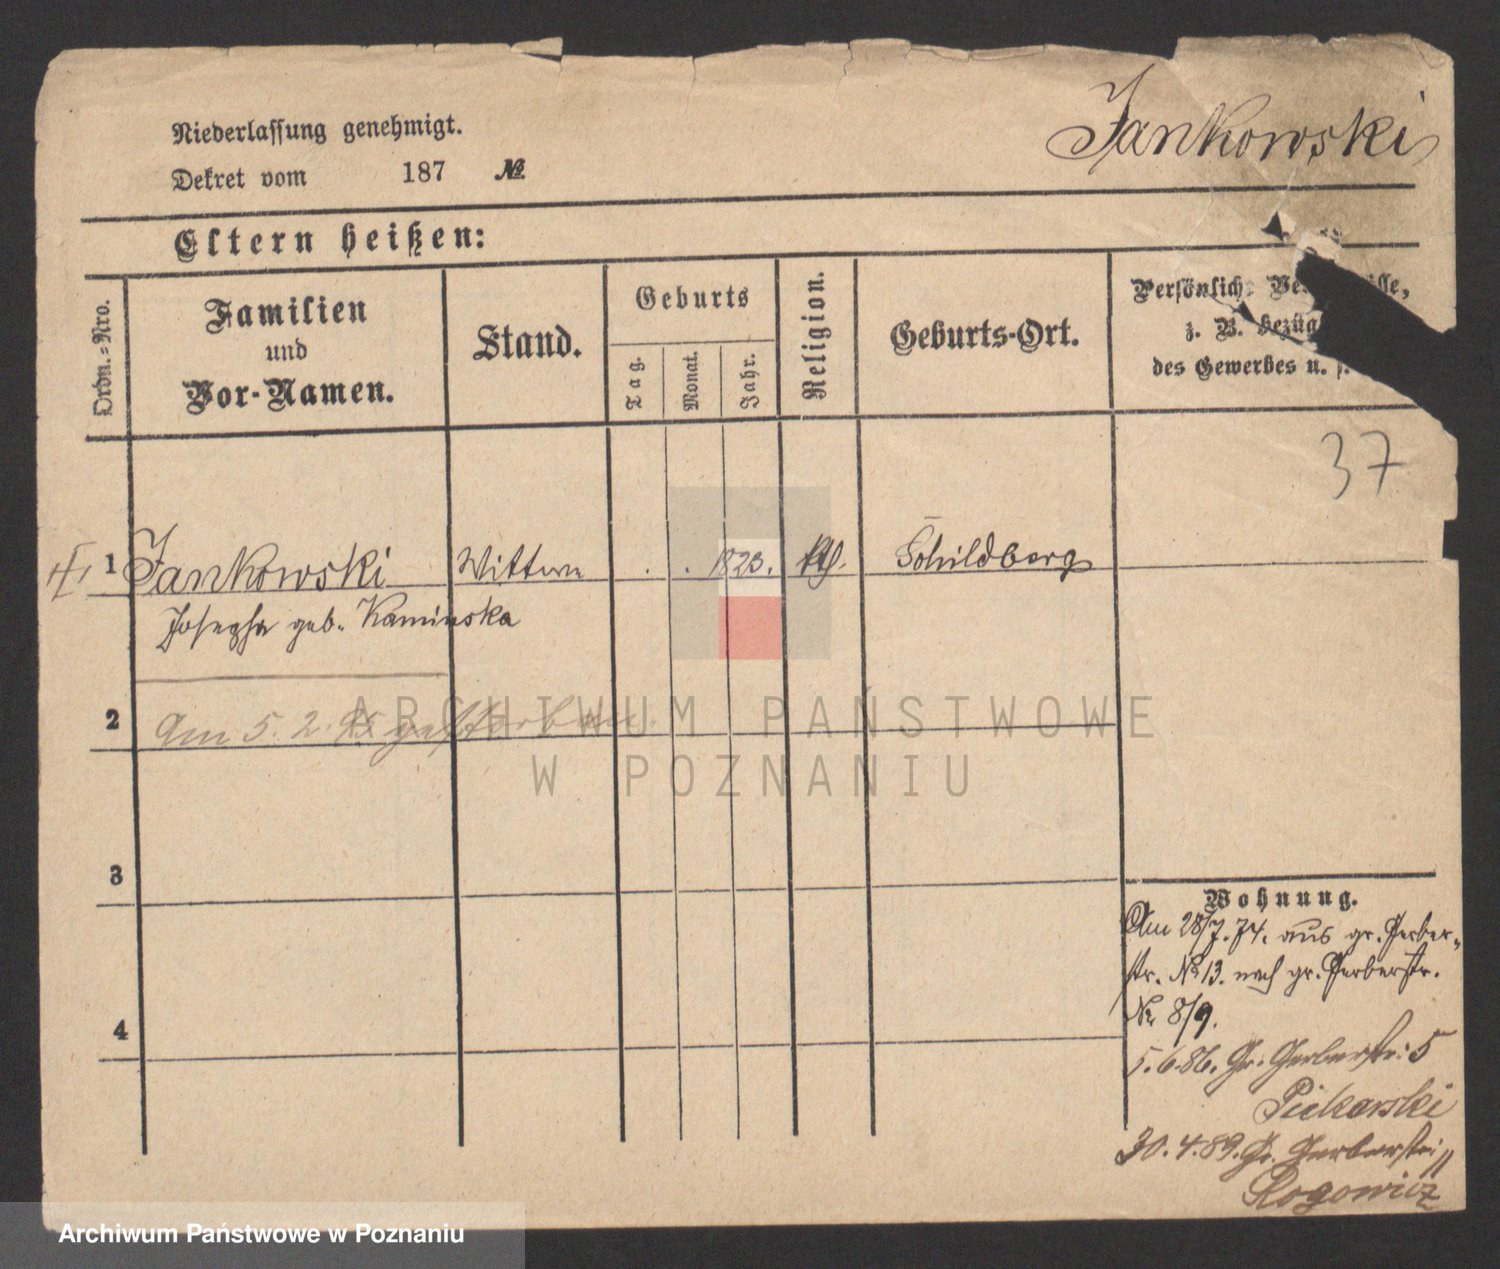 Jankowski
Niederlassung genehmigt.
Dekret vom 187 №
Eltern heißen:
Ordn.=Nro.
Familien
und
Vor-Namen.
Stand.
Geburts
Tag.
Monat.
Jahr.
Religion.
Geburts-Ort.
Persönliche
z. B. bezüg
des Gewerbes u.
37
1 Jankowski Wittwe . . 1823. kth. Schildberg
Josepha geb. Kaminska
2 Am 5. 2. 95 gestorben.
3
4
Wohnung.
Am 28/7. 74. aus gr. Gerber-
str. № 13. nach gr. Gerberstr.
№ 8/9.
5.6.86. Gr. Gerberstr: 5
Piekarski
30.4.89. Gr. Gerberstr: 11
Rogowicz
ARCHIWUM PAŃSTWOWE
W POZNANIU
Archiwum Państwowe w Poznaniu